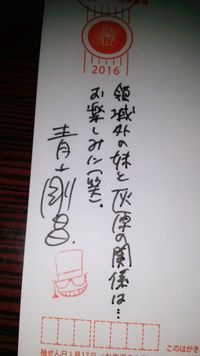 2016
領域外の妹と灰原の関係は…
お楽しみに(笑).
青山剛昌.
抽せん日1月17日
このはがき